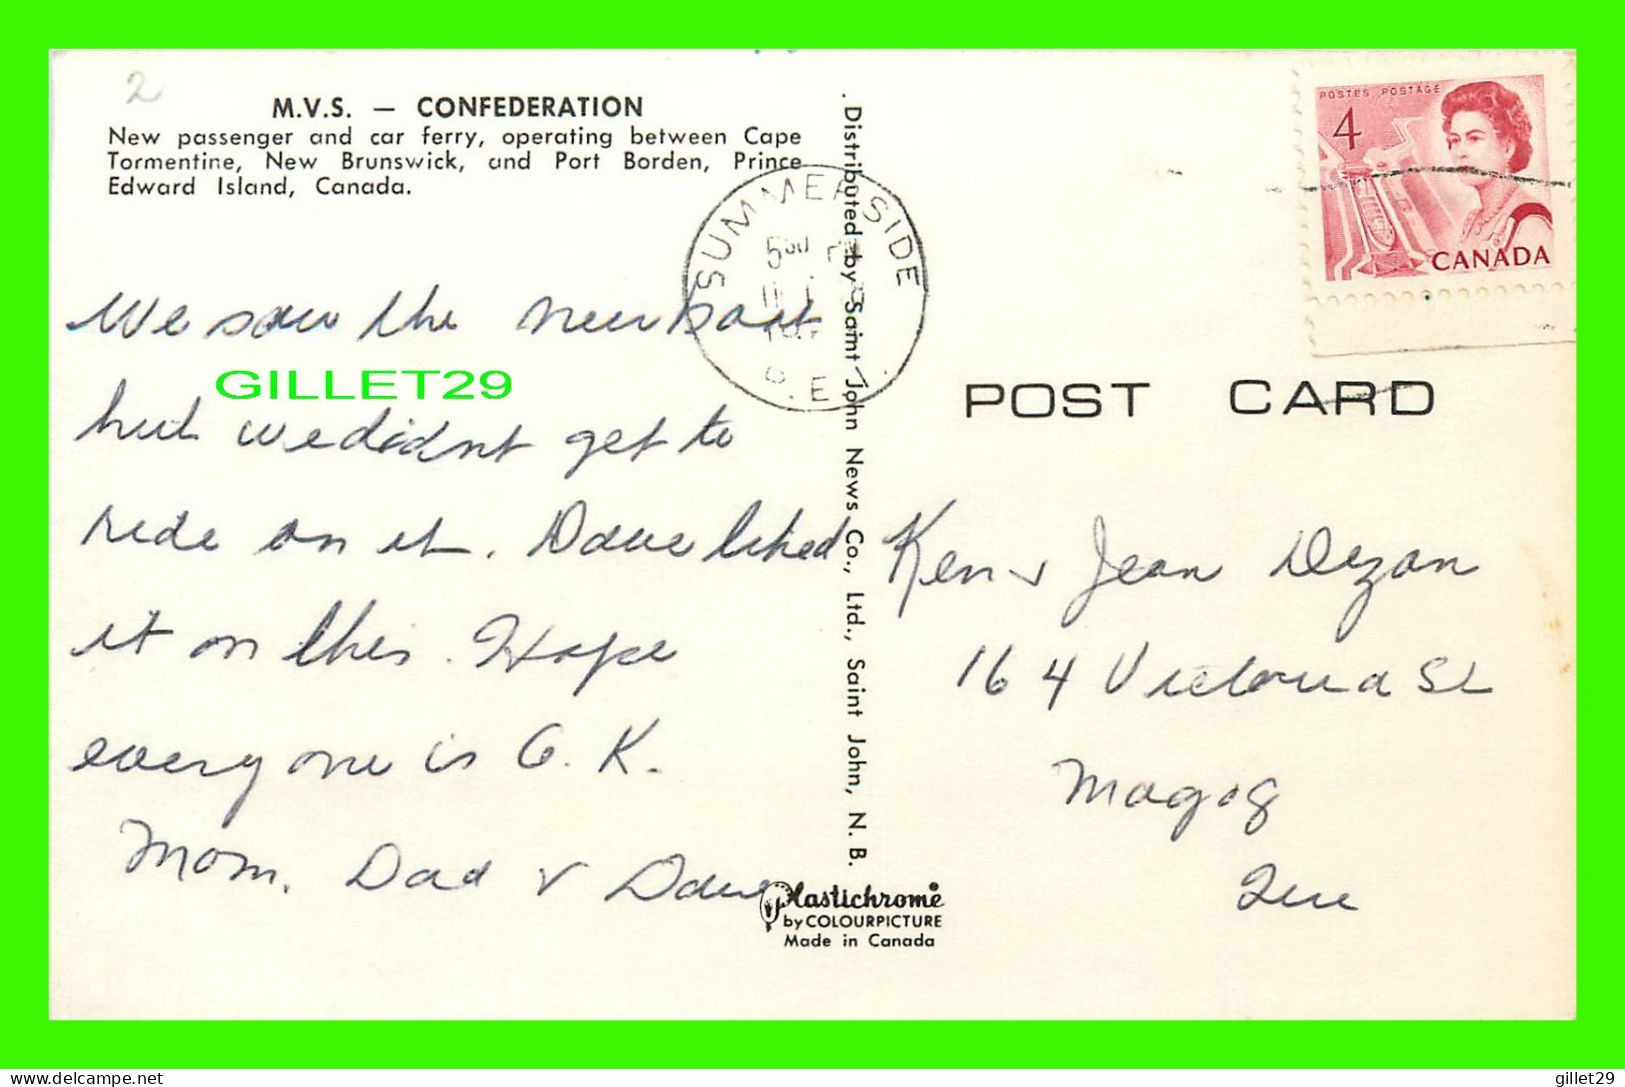 2
M.V.S. — CONFEDERATION
New passenger and car ferry, operating between Cape
Tormentine, New Brunswick, and Port Borden, Prince
Edward Island, Canada.
We saw the new boat
but we didnt get to
ride on it. Dave liked
it on this. Hope
everyone is O.K.
Mom, Dad & Dave
GILLET29
SUMMERSIDE
P.E.I.
Distributed by Saint John News Co., Ltd., Saint John, N. B.
Plastichrome
by COLOURPICTURE
Made in Canada
POSTES POSTAGE
4
CANADA
POST CARD
Ken & Jean Dezan
164 Victoria St
Magog
Que
delcampe.net
gillet29